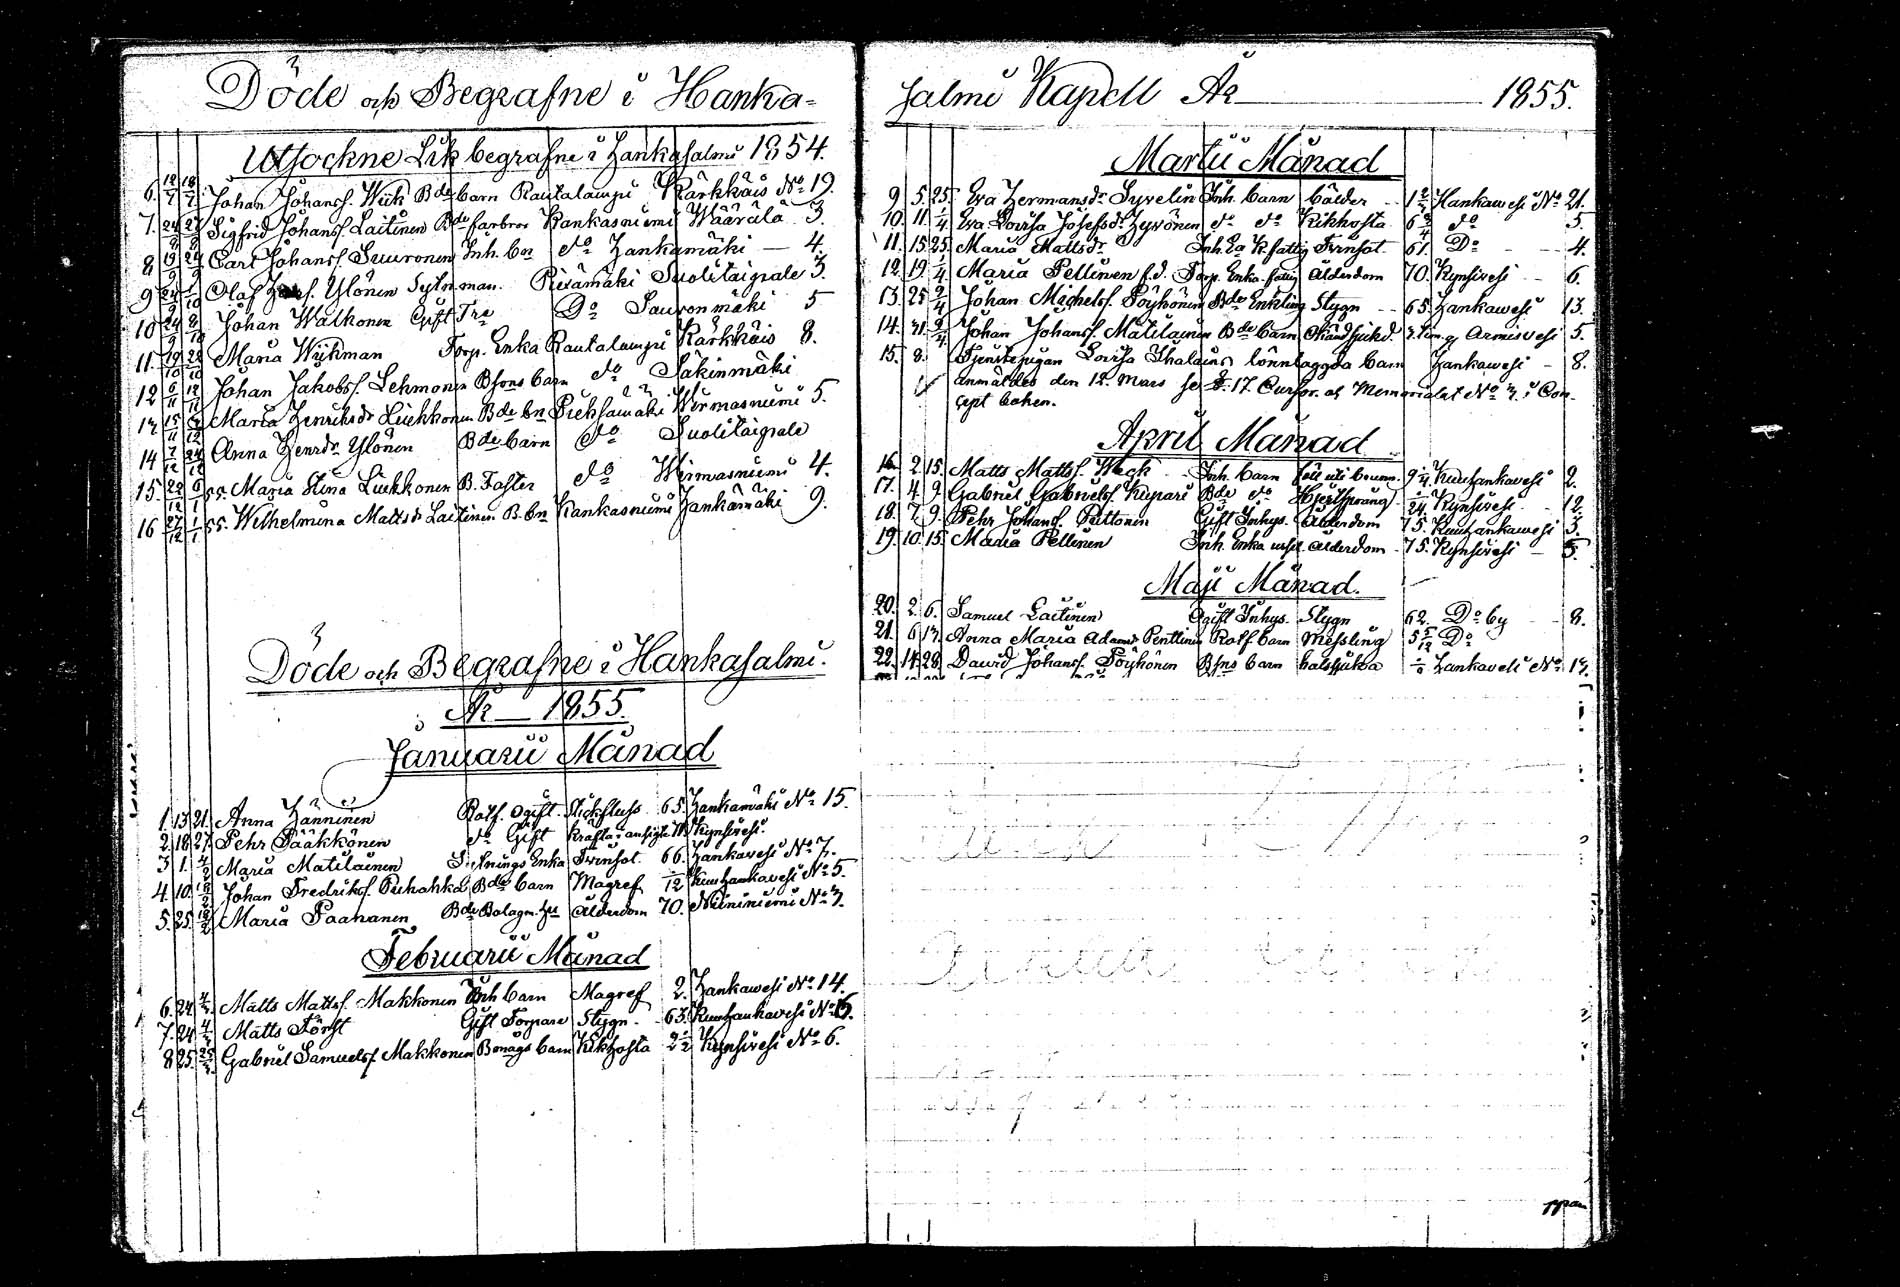 Döde och Begrafne i Hanka-
Utsockne Lik begrafne i Hankasalmi 1854.
6. 12/7 18/7 Johan Johansf. Wiik Bde barn Rautalampi Kärkkäis No 19.
7. 24 27 Sigfrid Johansf Laitinen Bde farbror Kankasniemi Wäärälä 3.
8 Carl Johansf. Suuronen Inh. bn do Hankamäki — 4.
9 Olaf Ylönen Sytn.man. Piexämäki Suolitaipale 3.
10 Johan Walkonen Gift Do Sauvonmäki 5
11. 19/10 22/10 Maria Wijkman Torp. Enka Rautalampi Kärkkäis 8.
12 6/11 12/11 Johan Jakobsf. Lehmonen Bfons barn do Säkinmäki
13 15/11 Maria Henriksdr Liukkonen Bde bn Pieksämäki Wirmasniemi 5.
14 7/12 24/12 Anna Henrdr Ylönen Bde barn do Suolitaipale
15 22/12 6/1 55. Maria Stina Liukkonen B. Faster do Wirmasniemi 4.
16 27/12 1/1 55. Wilhelmina Mattsdr Laitinen B. bn Kankasniemi Hankamäki 9.
Döde och Begrafne i Hankasalmi.
År — 1855.
Januarii Månad
1. 13 21. Anna Hänninen Rotf. ogift. Stickfluss 65. Hankamäki No 15.
2. 18 27. Pehr Pääkkönen do Gift Kräfta i ansigte Kynsivesi.
3 1. 4/2 Maria Matilainen Sytnings Enka Tvinsot. 66. Hankavesi No 7.
4 10. 18/2 Johan Fredriksf. Puhakka Bde barn Magref /12 Kuuhankavesi No 5.
5. 25. 18/2 Maria Paananen Bde Bolagm. Hu Ålderdom 70. Nieminiemi No 3.
Februarii Månad
6. 24. 4/3 Matts Mattsf. Makkonen Inh barn Magref 2. Hankavesi No 14.
7. 24 4/3 Matts Törst Gift Torpare Stygn. 63. Kuuhankavesi No 6.
8 25. 25/3 Gabriel Samuelsf. Makkonen Bonags barn Kikhosta 2 1/2 Kynsivesi No 6.
salmi Kapell År 1855.
Martii Månad
9 5. 25. Eva Hermansdr Syvelin Inh. barn bålder 1 Hankawesi No 21.
10. 11. 1/4 Eva Lovisa Josefsdr Hyvönen do do Kikhosta 6 do 5.
11. 15 25. Maria Mattsdr Inh. Ea fattig Tvinsot 61. Do 4.
12. 19. 1/4 Maria Pellinen f.d. Torp. Enka fattig Ålderdom 70. Kynsivesi 6.
13. 25 2/4 Johan Michelsf. Pöyhönen Bde Enkling Stygn 65. Hankawesi 13.
14. 31. 9/4 Johan Johansf. Matilainen Bde barn Okänd sjukd. 3. tim. g Armisvesi 5.
15. 8. Tjenstepigan Lovisa Ihalains lönnlaggda barn Hankawesi 8.
anmäldes den 12. Mars se 17. Cursor. af Memorialet No 3. i Con-
cept boken.
April Månad
16. 2. 15. Matts Mattsf. Weck Inh. barn föll uti brunn. 9 /4. Kuuhankavesi 2.
17. 4. 9. Gabriel Gabrielsf. Kupari Bde do Hjertsprång /24. Kynsivesi 12.
18. 7. 9. Pehr Johansf. Puttonen Gift Inhys. Ålderdom 75. Kuuhankawesi 3.
19. 10. 15. Maria Pellinen Inh. Enka Ålderdom 75. Kynsivesi — 5.
Maji Månad.
20. 2. 6. Samuel Laitinen Ogift Inhys. Stygn 62. Do by 8.
21. 6. 13. Anna Maria Adamsdr Penttinen Rotf. barn Messling 5 5/12 Do
22. 14. 28. David Johansf. Pöyhönen Bfns barn halssjuka Hankavesi No 13.